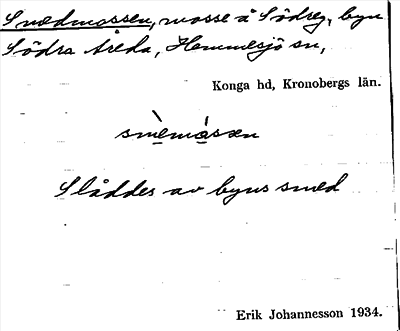 Smedmossen, mosse å Södreg, byn
Södra Åreda, Hemmesjö sn,
Konga hd, Kronobergs län.
smèmåsæn
Slåddes av byns smed
Erik Johannesson 1934.